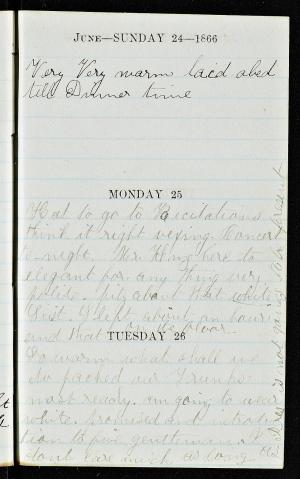 JUNE—SUNDAY 24—1866
Very Very warm laid abed
till Dinner time
MONDAY 25
Had to go to Recitations
think it right vexing. Concert
to-night. Mr King here to
elegant for any thing very
polite. about that white
I slept about an hour
and that on the floor.
TUESDAY 26
So warm what shall we
do packed our Trunks
most ready. am going to wear
white. promised and introduc
tion to five gentlemen. I
dont care much as long as
is not going to be present